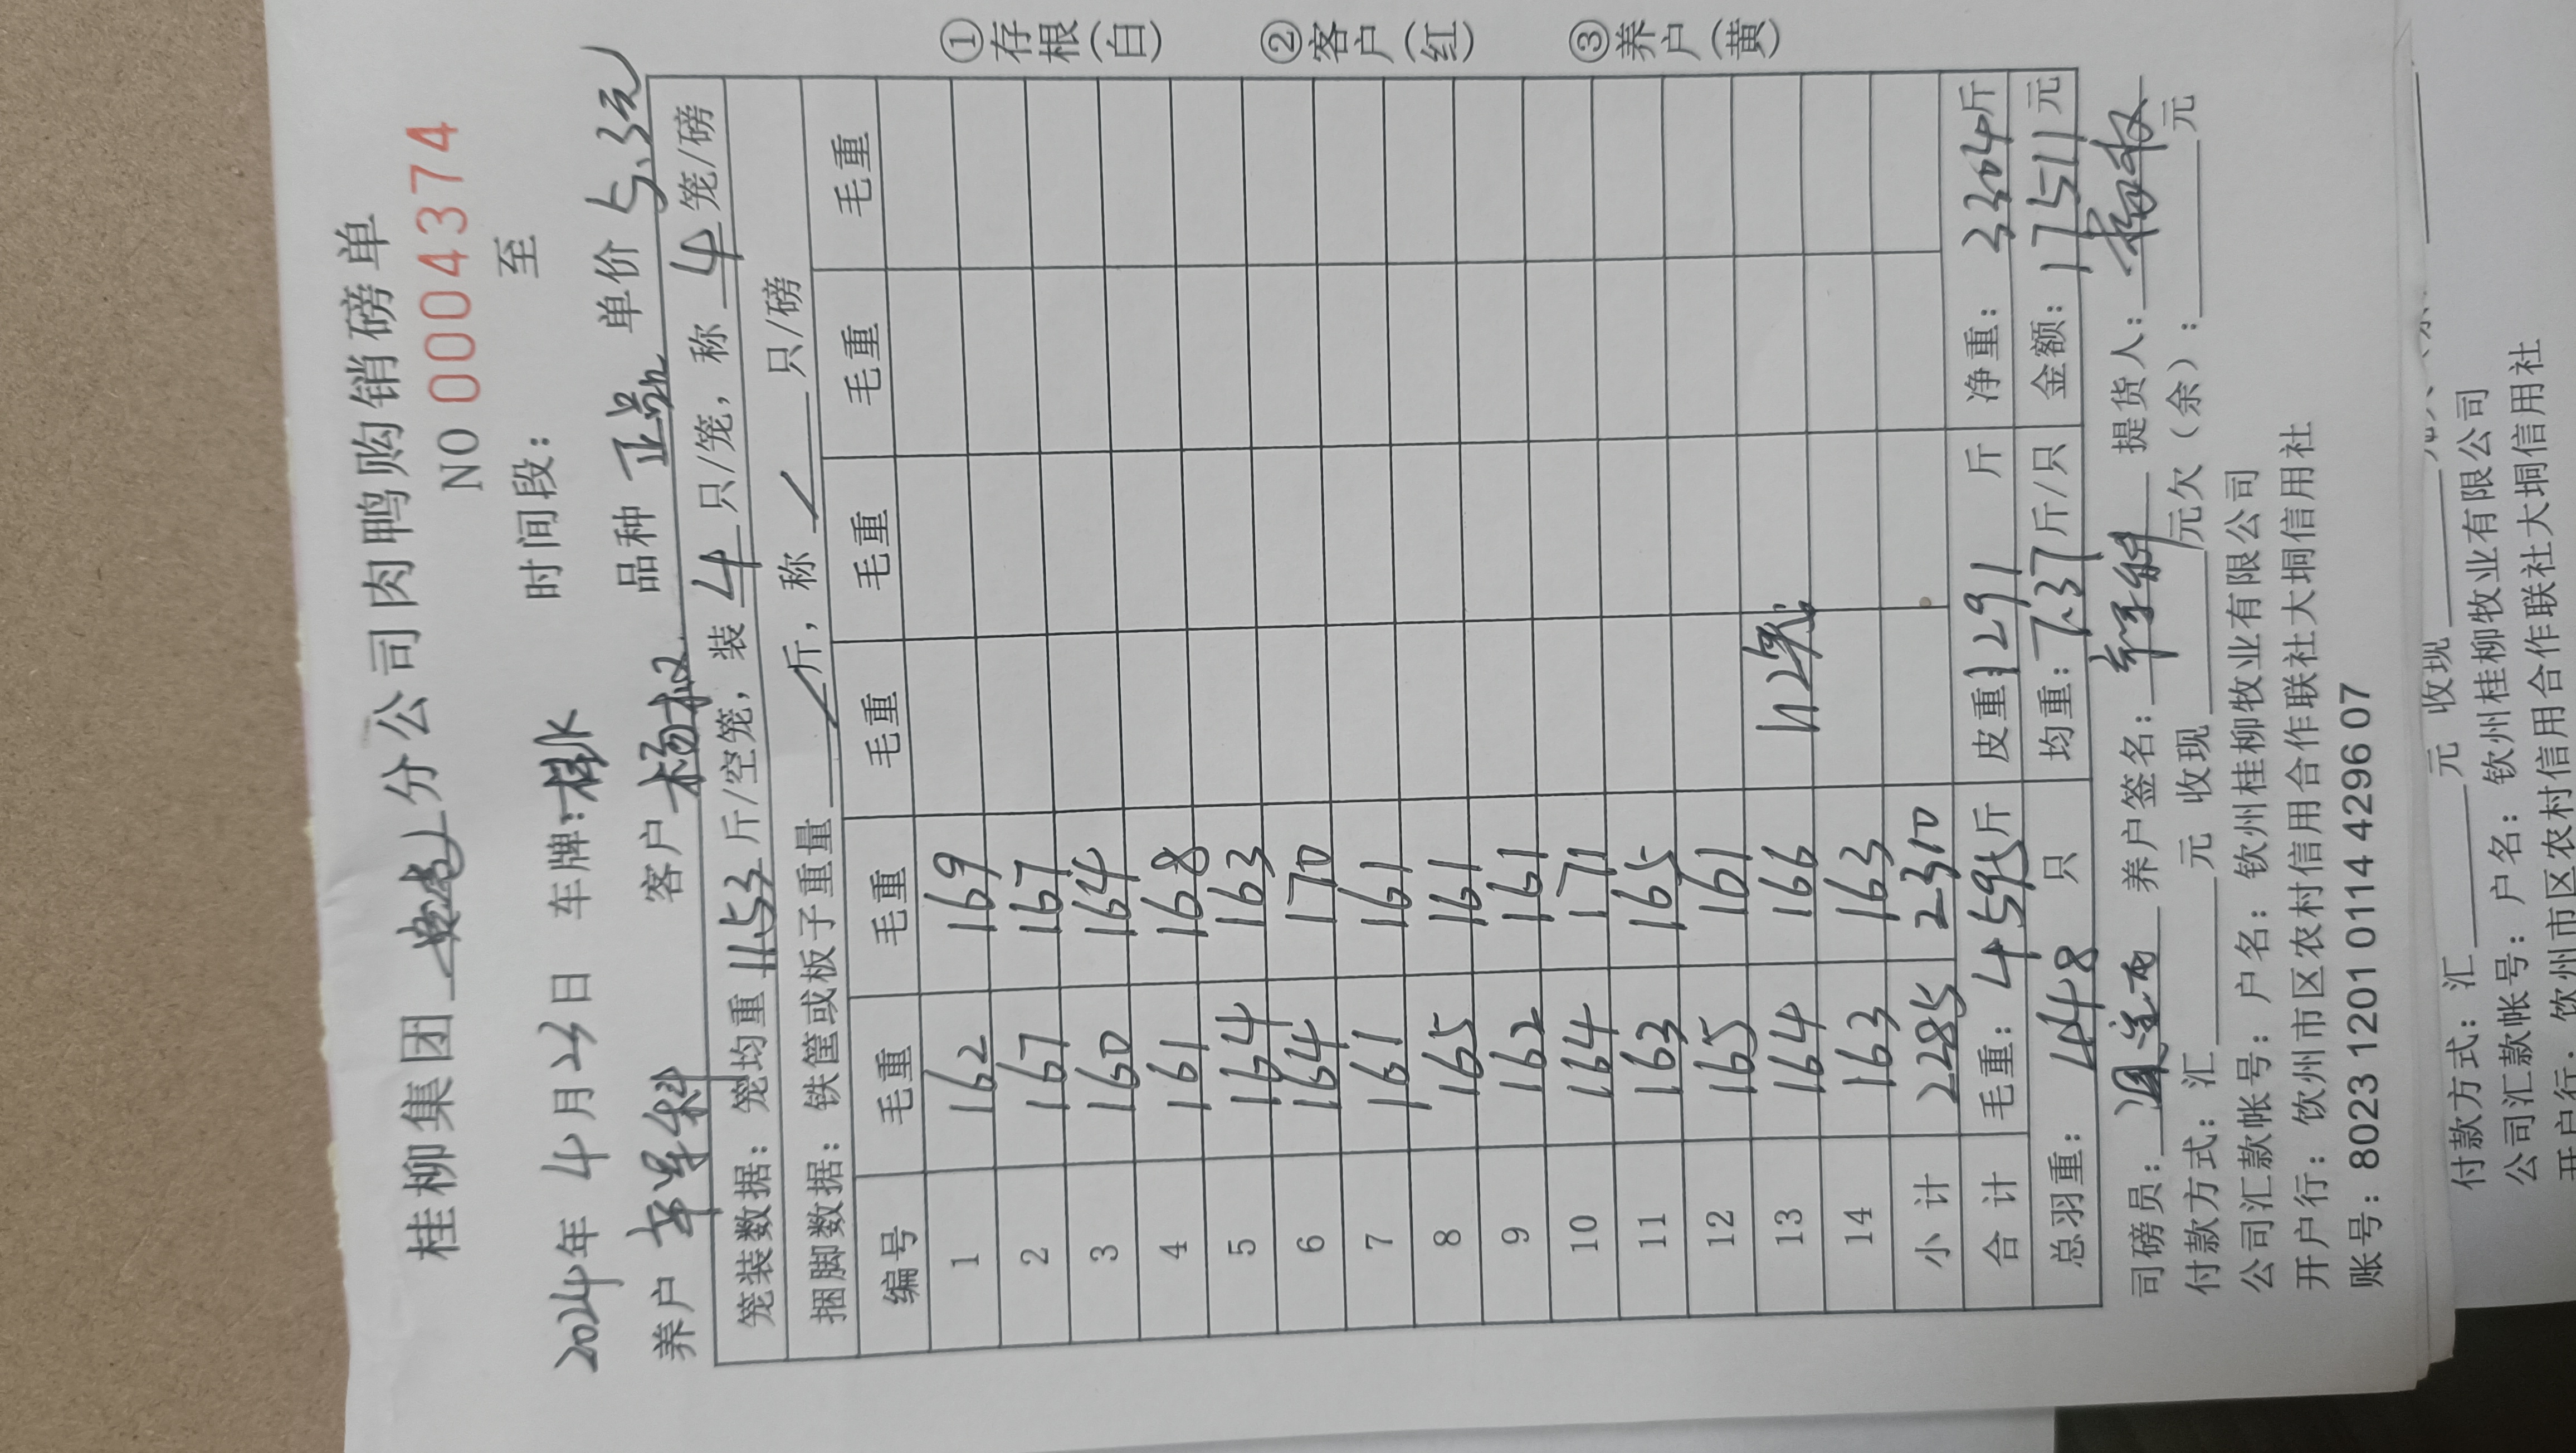 桂柳集团 分公司肉鸭购销磅单
NO 0004374
2024年 4月23日 车牌: 时间段: 至
养户 客户 杨权 品种 正品 单价 5.3元
笼装数据: 笼均重 11.53 斤/空笼, 装 4 只/笼, 称 4 笼/磅
捆脚数据: 铁筐或板子重量 / 斤, 称 / 只/磅
编号 毛重 毛重 毛重 毛重 毛重 毛重
1 162 169
2 167 167
3 160 164
4 161 168
5 164 163
6 164 170
7 161 161
8 165 161
9 162 161
10 164 171
11 163 165
12 165 161
13 164 166 112笼
14 163 163
小计 2285 2310
合计 毛重: 4595斤 皮重: 1291 斤 净重: 3304斤
总羽重: 448 只 均重: 7.37斤/只 金额: 17511元
司磅员: 养户签名: 提货人:
付款方式: 汇 元 收现 元欠(余): 元
公司汇款帐号: 户名: 钦州桂柳牧业有限公司
开户行: 钦州市区农村信用合作联社大垌信用社
账号: 8023 1201 0114 4296 07
①存根(白) ②客户(红) ③养户(黄)
付款方式: 汇 元 收现
公司汇款帐号: 户名: 钦州桂柳牧业有限公司
开户行: 钦州市区农村信用合作联社大垌信用社